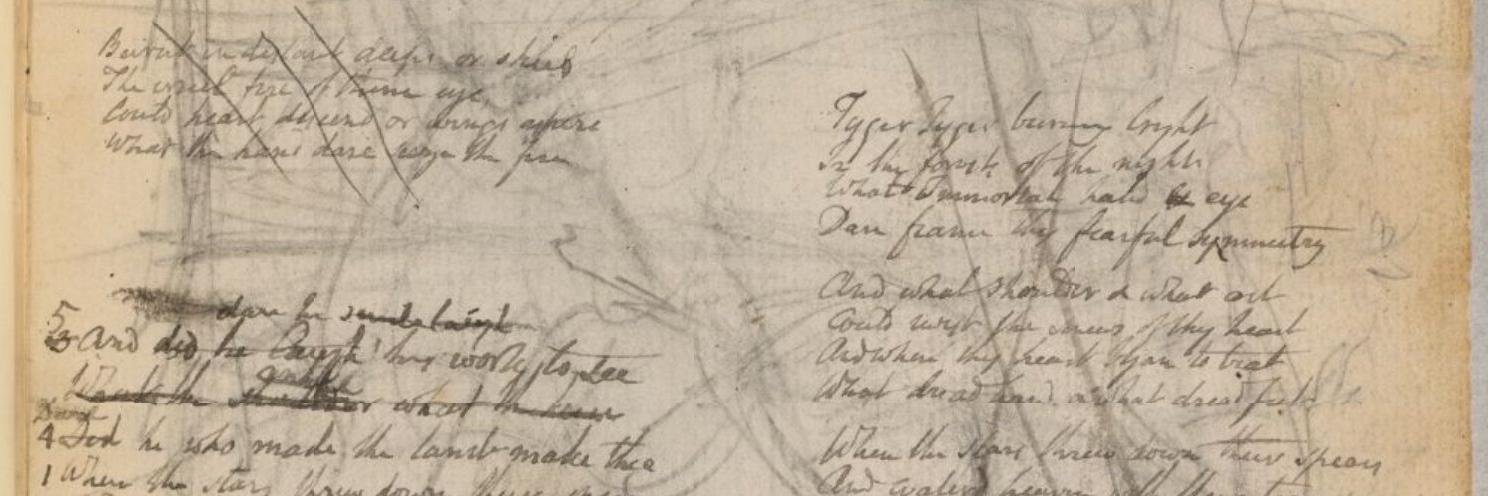 Burnt in distant deeps or skies
The cruel fire of thine eye
Could heart descend or wings aspire
What the hand dare seize the fire
dare he smile laugh
5 3 And did he laugh his work to see
What the shoulder what the knee
ankle
Dare
4 Did he who made the lamb make thee
1 When the stars threw down their spears
Tyger Tyger burning bright
In the forests of the night
What Immortal hand & eye
Dare frame thy fearful symmetry
And what shoulder & what art
Could twist the sinews of thy heart
And when thy heart began to beat
What dread hand & what dread feet
When the stars threw down their spears
And water'd heaven with their tears